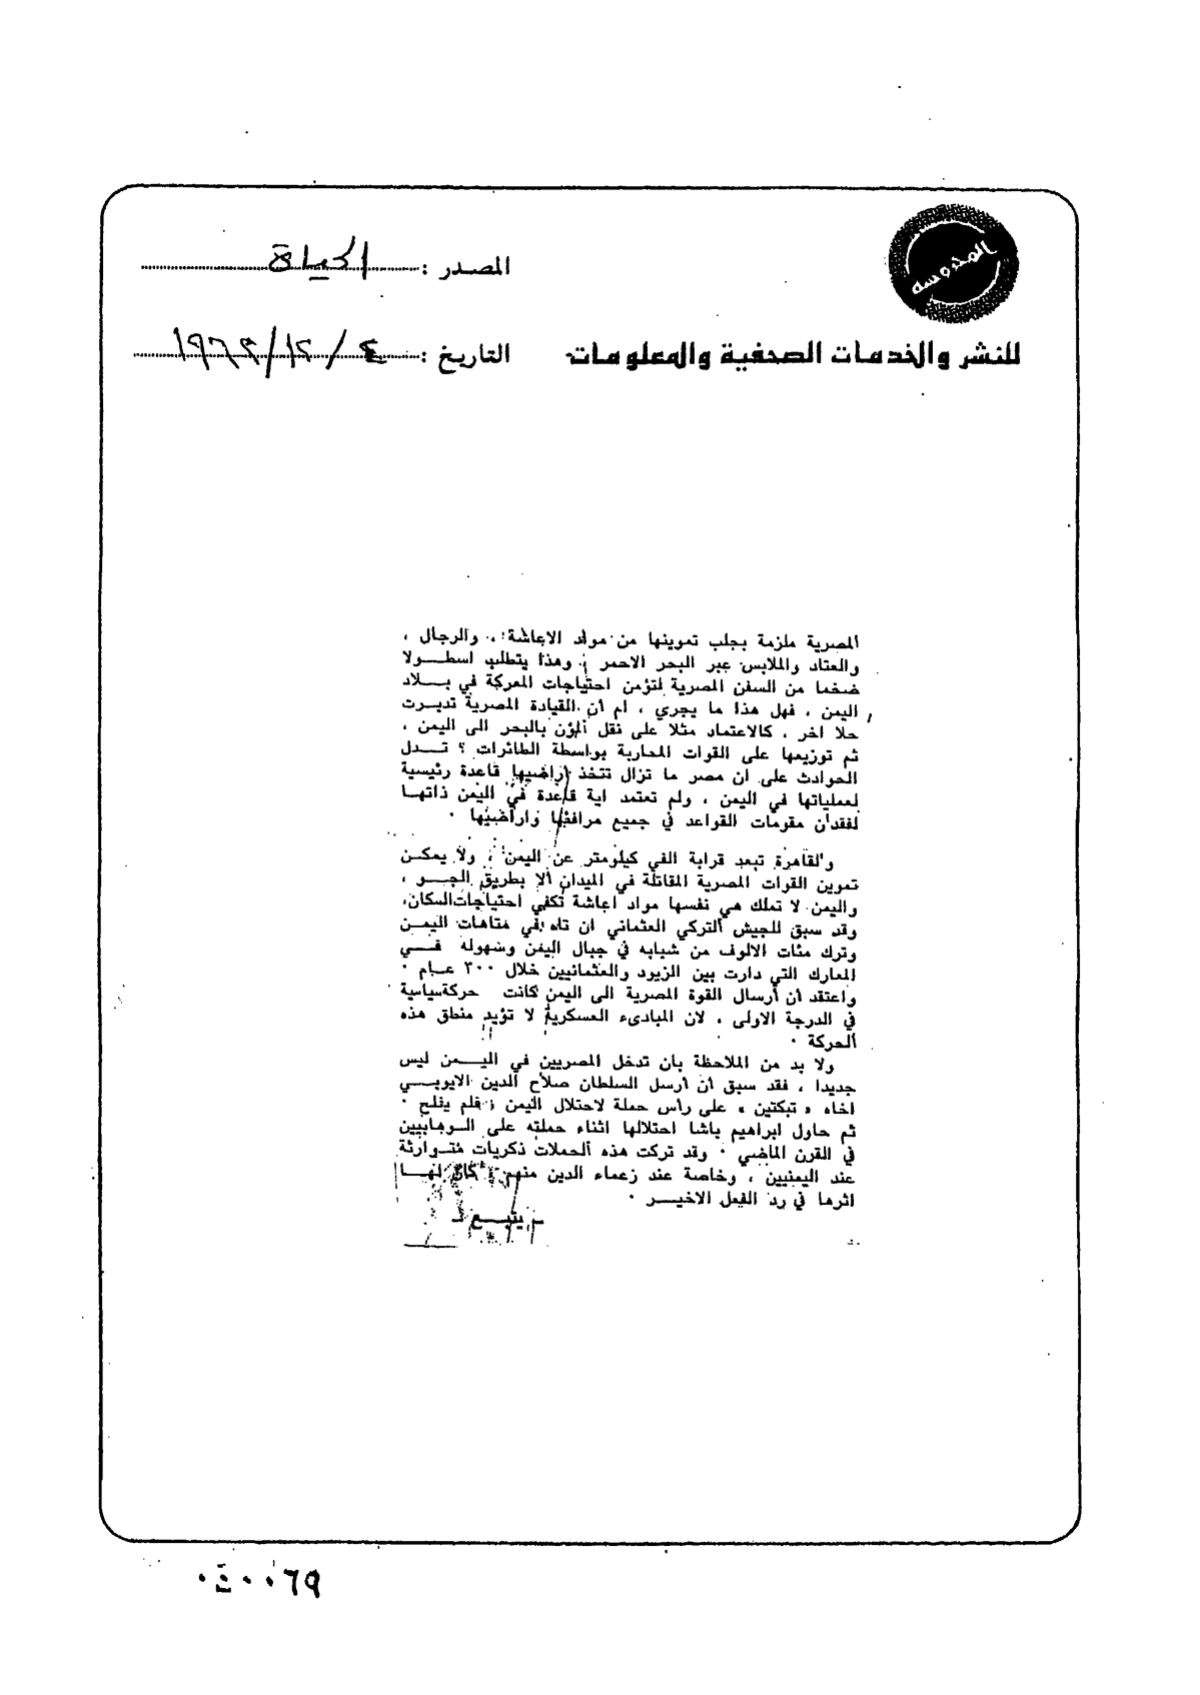 المحروسة
المصدر : الحياة
للنشر والخدمات الصحفية والمعلومات
التاريخ : ٤ / ١٢ / ١٩٦٢
المصرية ملزمة بجلب تموينها من مواد الاعاشة ، والرجال ،
والعتاد والملابس عبر البحر الاحمر ; وهذا يتطلب اسطــولا
ضخما من السفن المصرية لتؤمن احتياجات المعركة في بــلاد
اليمن ، فهل هذا ما يجري ، ام أن القيادة المصرية تدبــرت
حلا اخر ، كالاعتماد مثلا على نقل المؤن بالبحر الى اليمن ،
ثم توزيعها على القوات المحاربة بواسطة الطائرات ؟ تــدل
الحوادث على ان مصر ما تزال تتخذ اراضيها قاعدة رئيسية
لعملياتها في اليمن ، ولم تعتمد اية قاعدة في اليمن ذاتهــا
لفقدان مقومات القواعد في جميع مرافئها واراضيها ٠
والقاهرة تبعد قرابة الفي كيلومتر عن اليمن ، ولا يمكــن
تموين القوات المصرية المقاتلة في الميدان الا بطريق الجــو ،
واليمن لا تملك هي نفسها مواد اعاشة تكفي احتياجات السكان،
وقد سبق للجيش التركي العثماني ان تاه في متاهات اليمــن
وترك مئات الالوف من شبابه في جبال اليمن وسهوله فــي
المعارك التي دارت بين الزيود والعثمانيين خلال ٣٠٠ عــام ٠
واعتقد أن أرسال القوة المصرية الى اليمن كانت حركة سياسية
في الدرجة الاولى ، لان المبادىء العسكرية لا تؤيد منطق هذه
الحركة ٠
ولا بد من الملاحظة بأن تدخل المصريين في اليــمن ليس
جديدا ، فقد سبق أن أرسل السلطان صلاح الدين الايوبــي
اخاه « تبكتين » على رأس حملة لاحتلال اليمن ; فلم يفلح ٠
ثم حاول ابراهيم باشا احتلالها اثناء حملته على الــوهابيين
في القرن الماضي ٠ وقد تركت هذه الحملات ذكريات متــوارثة
عند اليمنيين ، وخاصة عند زعماء الدين منهم ; كان لهــا
اثرها في رد الفعل الاخيــر ٠
ــ يتبــع ــ
٠٤٠٠٦٩